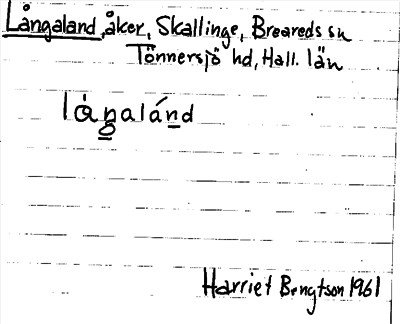 Långaland, åker, Skallinge, Breareds sn
Tönnersjö hd, Hall. län
lågalánd
Harriet Bengtson 1961